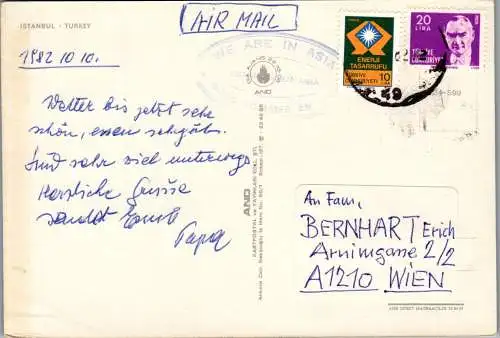 ISTANBUL - TURKEY
AIR MAIL
1982 10 10.
WE ARE IN ASIA
AND
ENERJİ
TASARRUFU
TÜRKİYE CUMHURİYETİ 10
LIRA
20
LIRA
TÜRKİYE
CUMHURİYETİ
Wetter bis jetzt sehr
schön, essen sehr gut.
Sind sehr viel unterwegs
Herzliche Grüsse
sendet Euch
Papa
AND
KARTPOSTAL ve YAYINLARI KOLL. ŞTİ.
An Fam,
BERNHART Erich
Arnimgasse 2/2
A1210 WIEN